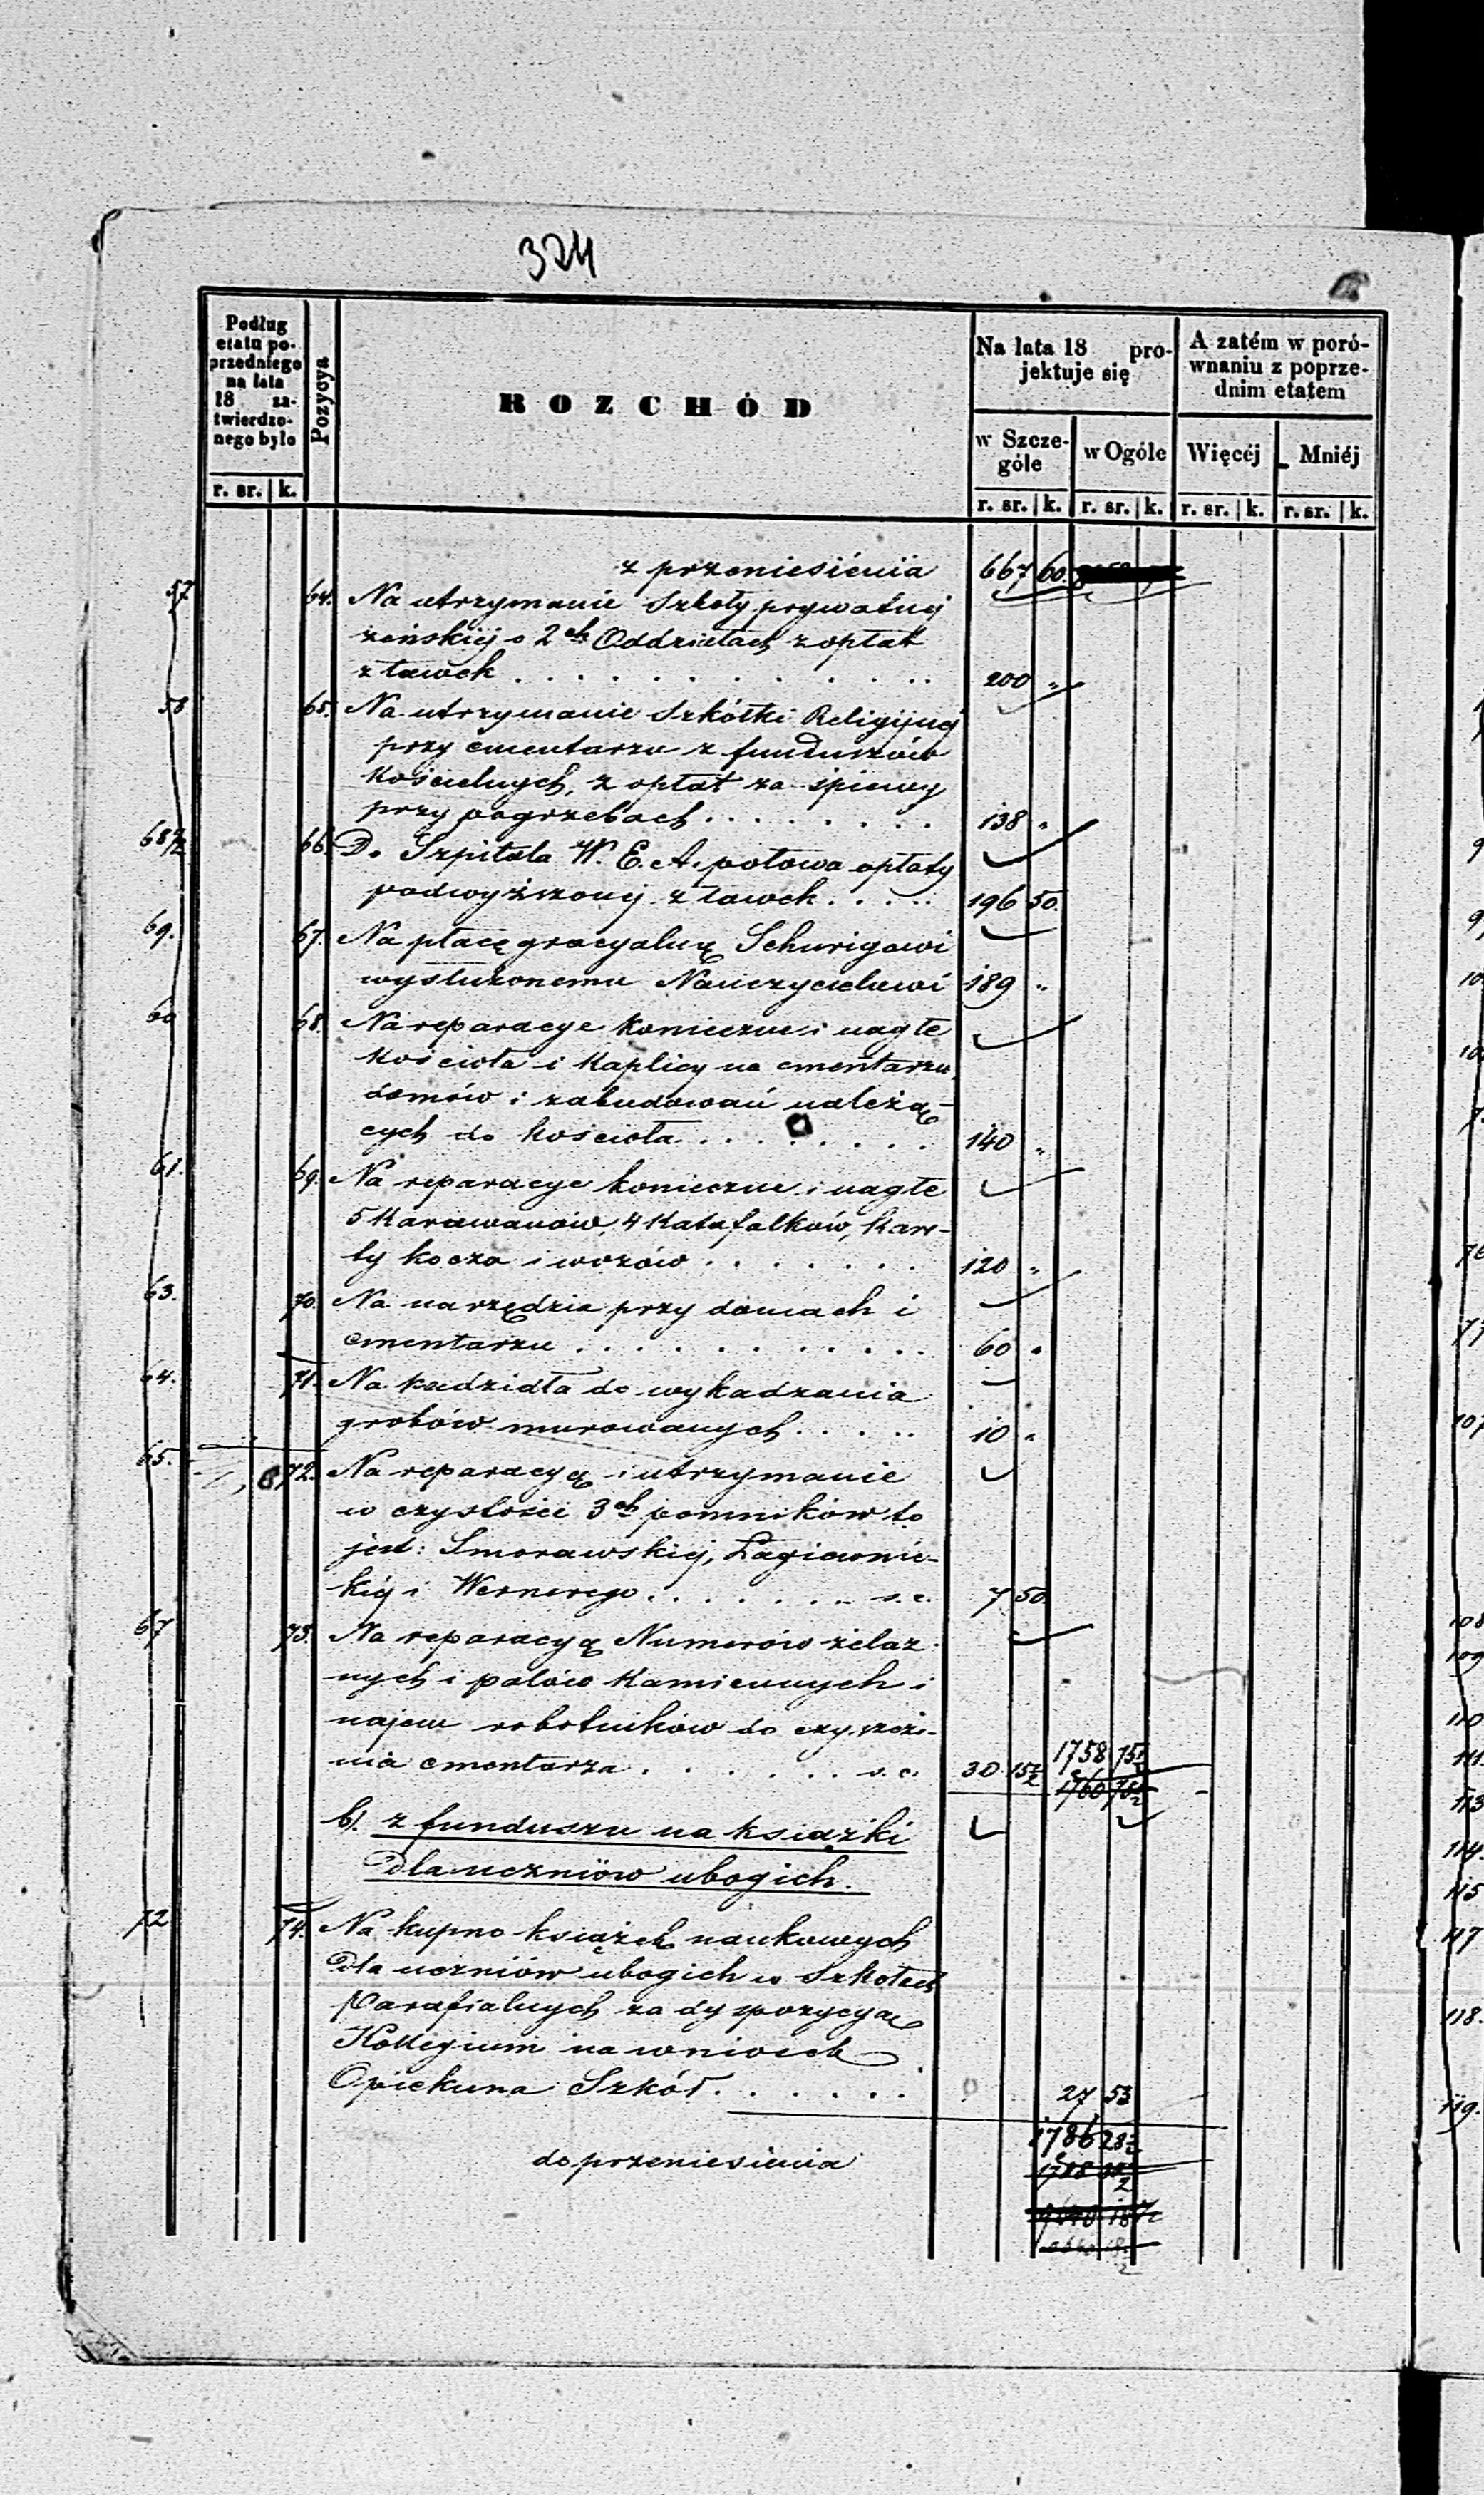 324
Podług etatu poprzedniego na lata 18 zatwierdzonego było
Pozycya
ROZCHÓD
Na lata 18 projektuje się
A zatém w porównaniu z poprzednim etatem
w Szczególe
w Ogóle
Więcéj
Mniéj
r. sr. k. r. sr. k. r. sr. k. r. sr. k. r. sr. k.
z przeniesiénia 667 60.
57 64. Na utrzymanie Szkoły prywatnej
żeńskiej o 2ch Oddziałach z opłat
z ławek . . . . 200 "
58 65. Na utrzymanie Szkółki Religijnej
przy cmentarzu z funduszów
Kościelnych, z opłat za śpiewy
przy pogrzebach . . . . 138 "
66. Do Szpitala W. E. A. połowa opłaty
podwyższonej z ławek . . . . 196 50.
69. 67. Na płacę gracyalną Schurigowi
wysłużonemu Nauczycielowi 189 "
60 68. Na reparacye konieczne i nagłe
Kościoła i Kaplicy na cmentarzu,
domów i zabudowań należą-
cych do Kościoła . . . . 140 "
61. 69. Na reparacye konieczne i nagłe
5 Karawanów, 4 Katafalków, Kare-
ty kocza i wozów . . . . 120 "
63. 70. Na narzędzia przy domach i
cmentarzu . . . . 60 "
64. 71. Na kadzidła do wykadzania
grobów murowanych . . . . 10 "
65. 72. Na reparacyą i utrzymanie
w czystości 3ch pomników to
jest: Smorawskiej, Łagiewnic-
kiéj i Wernerego . . . . s. c. 7 50
67 73. Na reparacyą Numerów żelaz-
nych i palów Kamiennych i
najem robotników do czyszcze-
nia cmentarza . . . . s. c. 30 15½ 1758 75½
1760 75½
b). z funduszu na książki
Dla uczniów ubogich.
72 74. Na kupno książek naukowych
Dla uczniów ubogich w Szkołach
Parafialnych za dyspozycyą
Kollegium na wniosek
Opiekuna Szkół . . . . 27 53
1786 28½
do przeniesienia